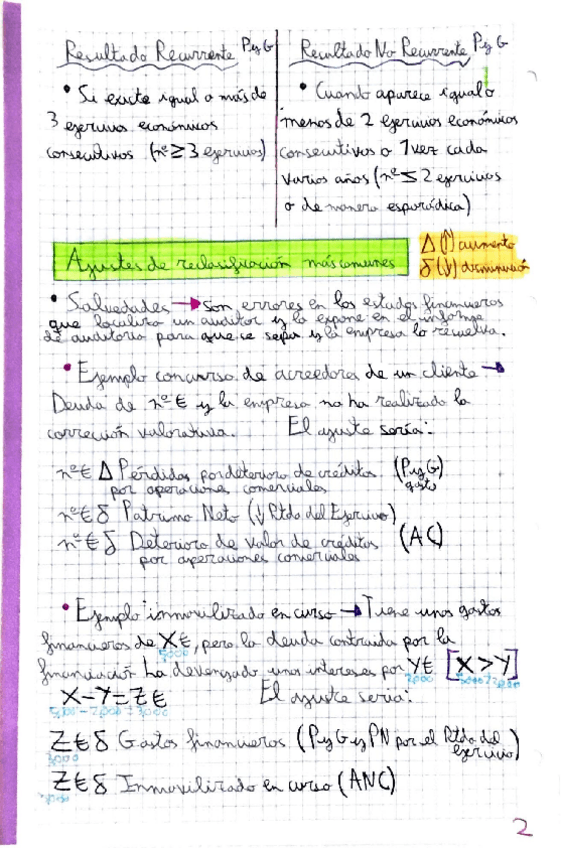 Resultado Recurrente PyG
• Si existe igual o más de
3 ejercicios económicos
consecutivos (nº≥3 ejercicios)
Resultado No Recurrente PyG
• Cuando aparece igual o
menos de 2 ejercicios económicos
consecutivos o 1 vez cada
varios años (nº≤2 ejercicios
o de manera esporádica)
Ajustes de reclasificación más comunes
Δ (↑) aumento
δ (↓) disminución
• Salvedades → son errores en los estados financieros
que localiza un auditor y lo expone en el informe
de auditoria para que se sepa y la empresa lo resuelva.
• Ejemplo concurso de acreedores de un cliente →
Deuda de nº€ y la empresa no ha realizado la
corrección valorativa. El ajuste sería:
nº€ Δ Pérdidas por deterioro de créditos (PyG)
por operaciones comerciales gasto
nº€ δ Patrimo Neto (↓ Rtdo del Ejercicio)
nº€ δ Deterioro de valor de créditos (AC)
por operaciones comerciales
• Ejemplo inmovilizado en curso → Tiene unos gastos
financieros de X€, pero la deuda contraida por la
5000
financiación ha devengado unos intereses por Y€ [X>Y]
2000 5000>2000
X-Y=Z€ El ajuste seria:
5000-2000=3000
Z€ δ Gastos financieros (PyG y PN por el Rtdo del
3000 ejercicio)
Z€ δ Inmovilizado en curso (ANC)
3000
2